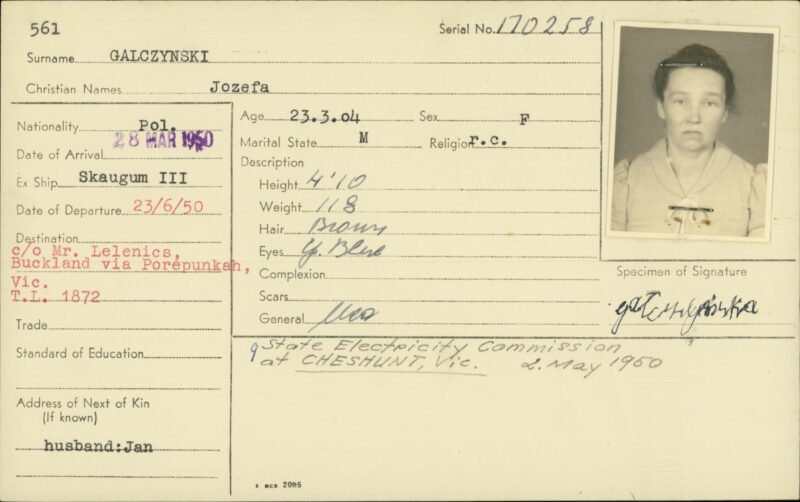 561
Serial No. 170258
Surname GALCZYNSKI
Christian Names Jozefa
Nationality Pol.
28 MAR 1950
Date of Arrival
Ex Ship Skaugum III
Date of Departure 23/6/50
Destination
c/o Mr. Lelenics,
Buckland via Porepunkah,
Vic.
T.L. 1872
Trade
Standard of Education
Address of Next of Kin
(If known)
husband:Jan
Age 23.3.04 Sex F
Marital State M Religion r.c.
Description
Height 4'10
Weight 118
Hair Brown
Eyes G. Blue
Complexion
Scars
General
State Electricity Commission
at CHESHUNT, Vic. 2. May 1950
Specimen of Signature
MCD 2085